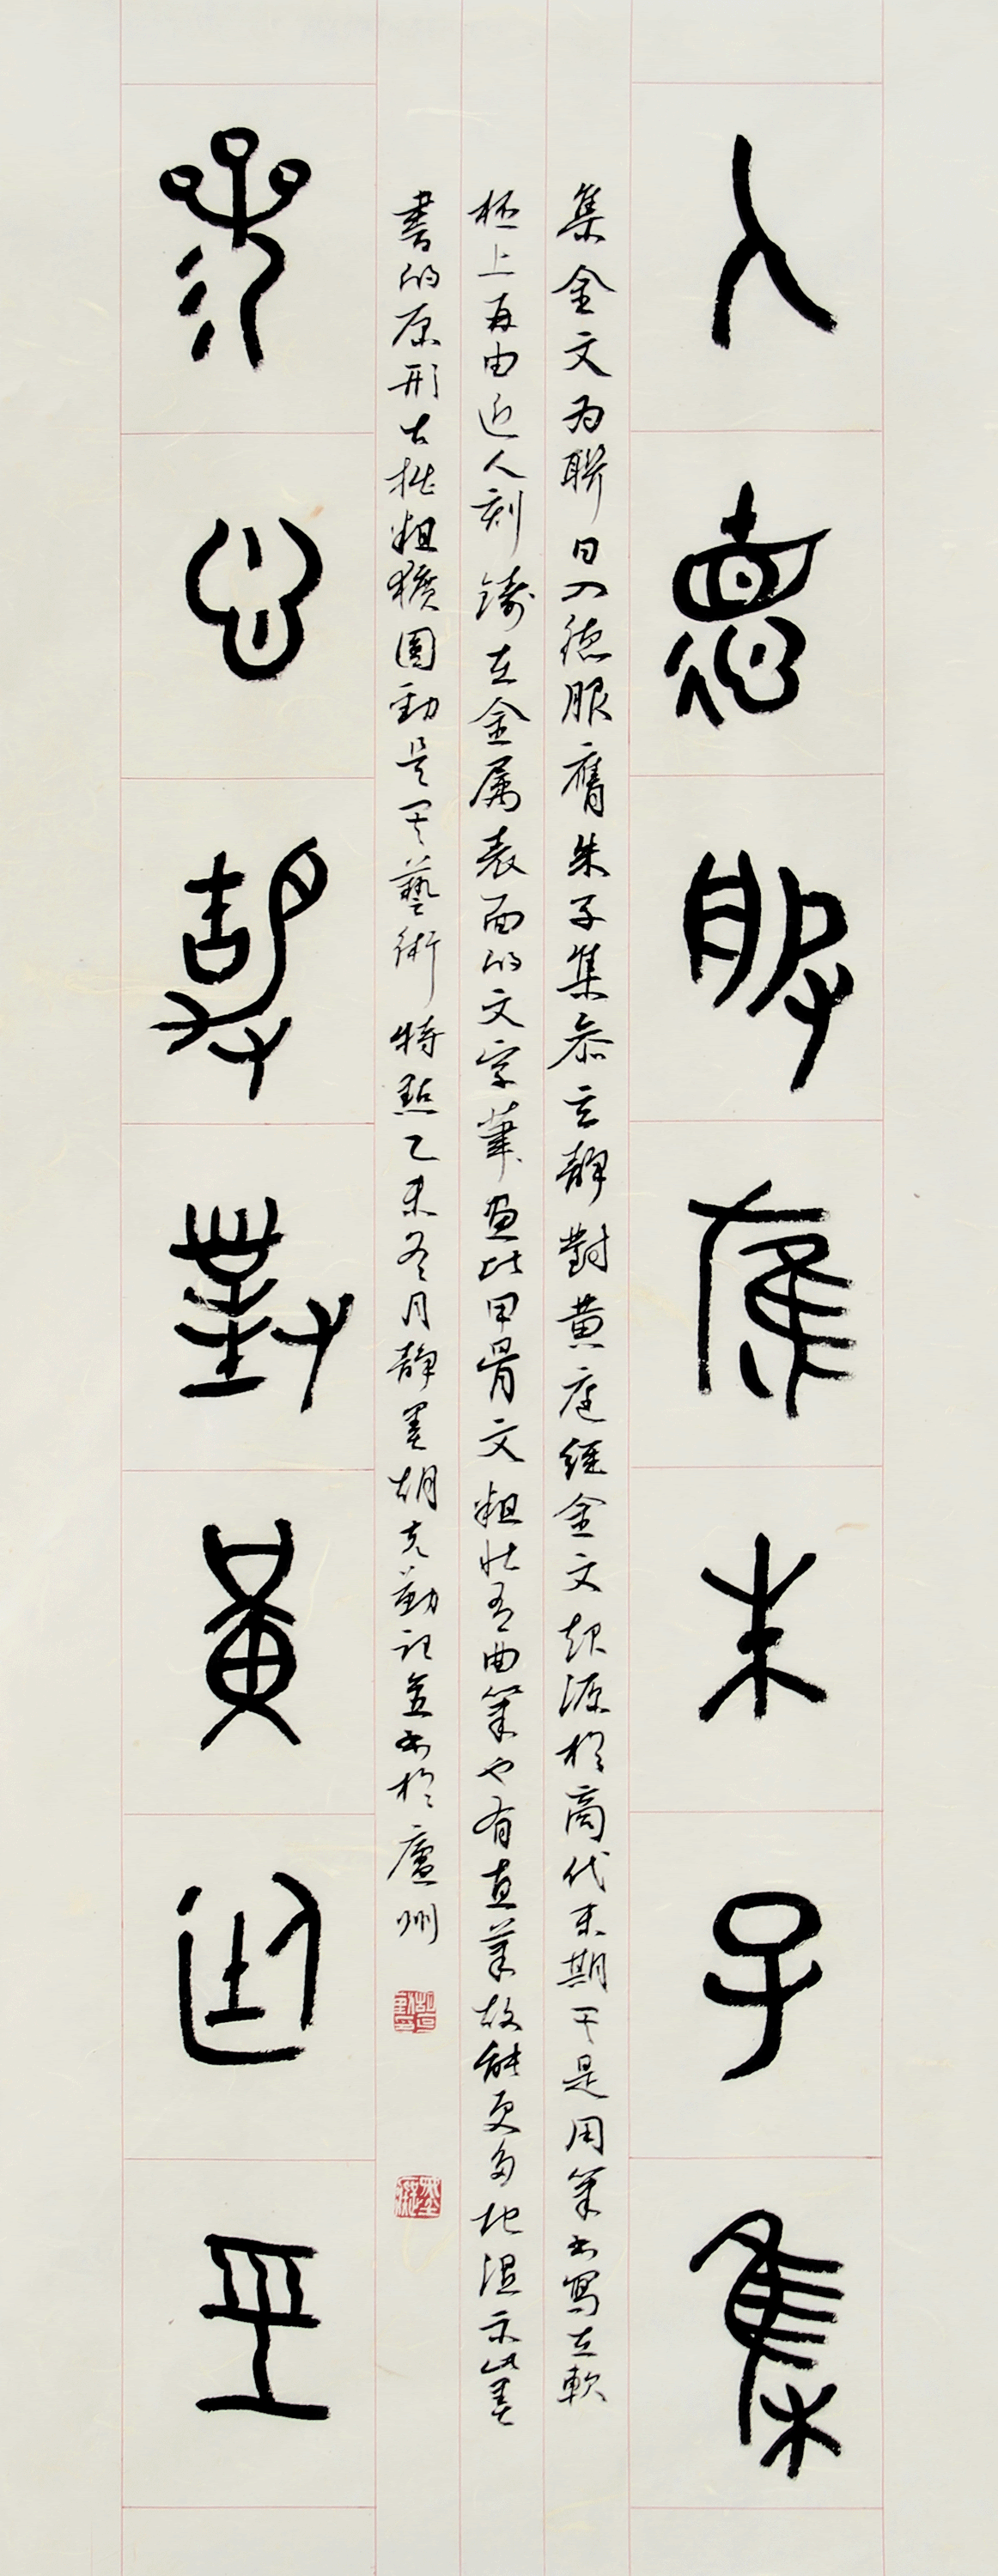 入德服膺朱子集
集金文为聯曰入德服膺朱子集叅心靜對黄庭經金文起源於商代末期其是用筆书寫在軟
坯上再由匠人刻鑄在金属表面的文字筆画比甲骨文粗壯有曲筆也有直筆故能更多地显示出墨
書的原形古拙粗獷圓勁是其藝術特點乙未冬月靜墨胡克勤記並书於廬州
參心靜對黃庭巠